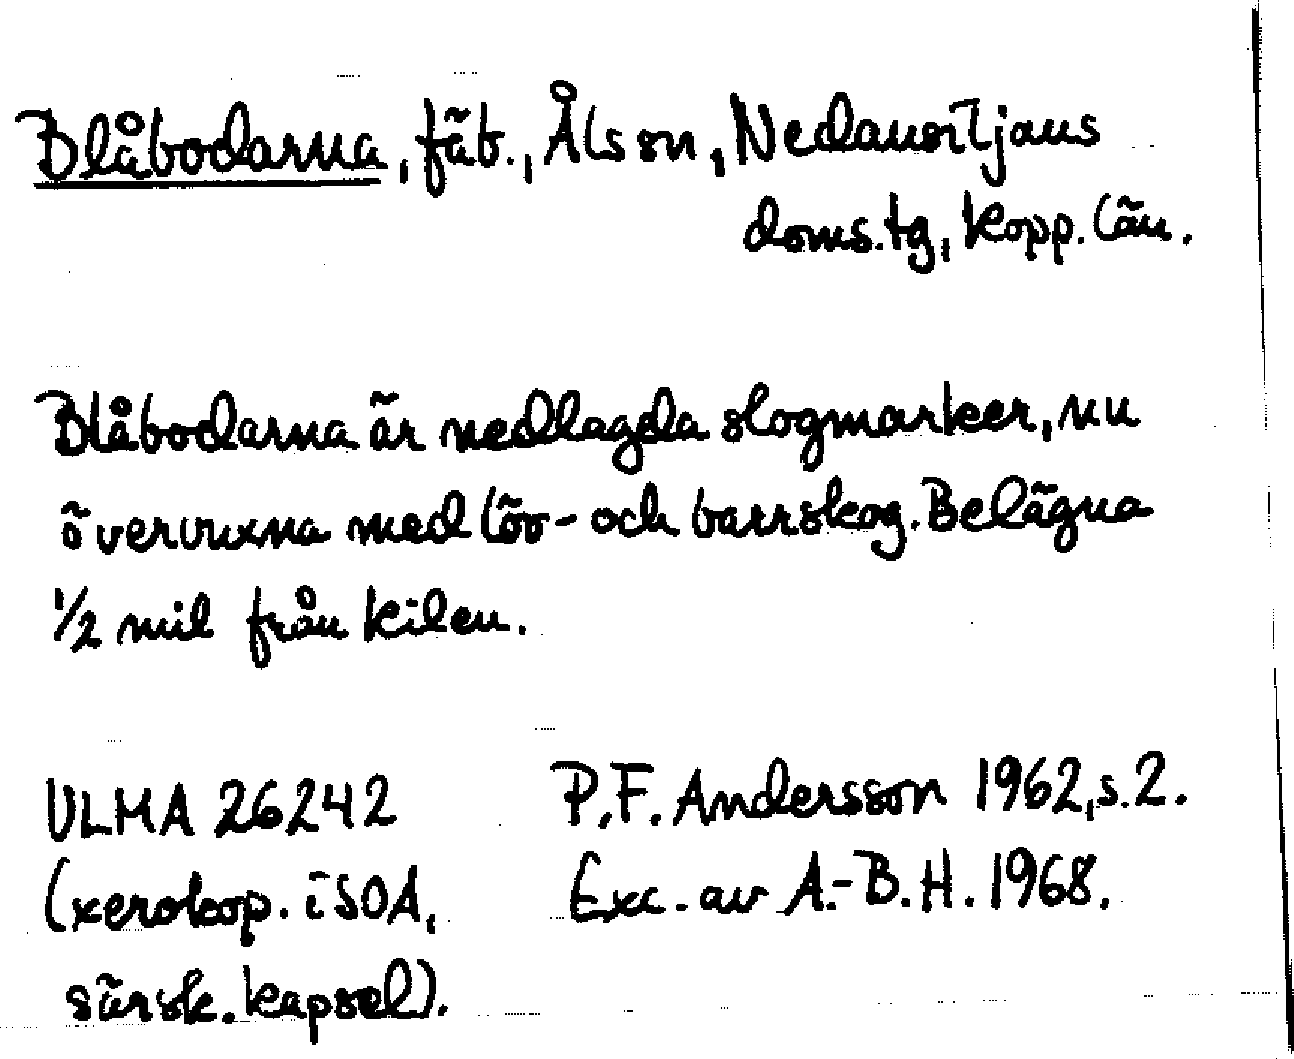 Blåbodarna, fäb., Åls sn, Nedansiljans
doms.tg, Kopp. län.
Blåbodarna är nedlagda slogmarker, nu
övervuxna med löv- och barrskog. Belägna
1/2 mil från Kilen.
ULMA 26242 P.F. Andersson 1962, s. 2.
(xerokop. i SOA, Exc. av A.-B.H. 1968.
särsk. kapsel).